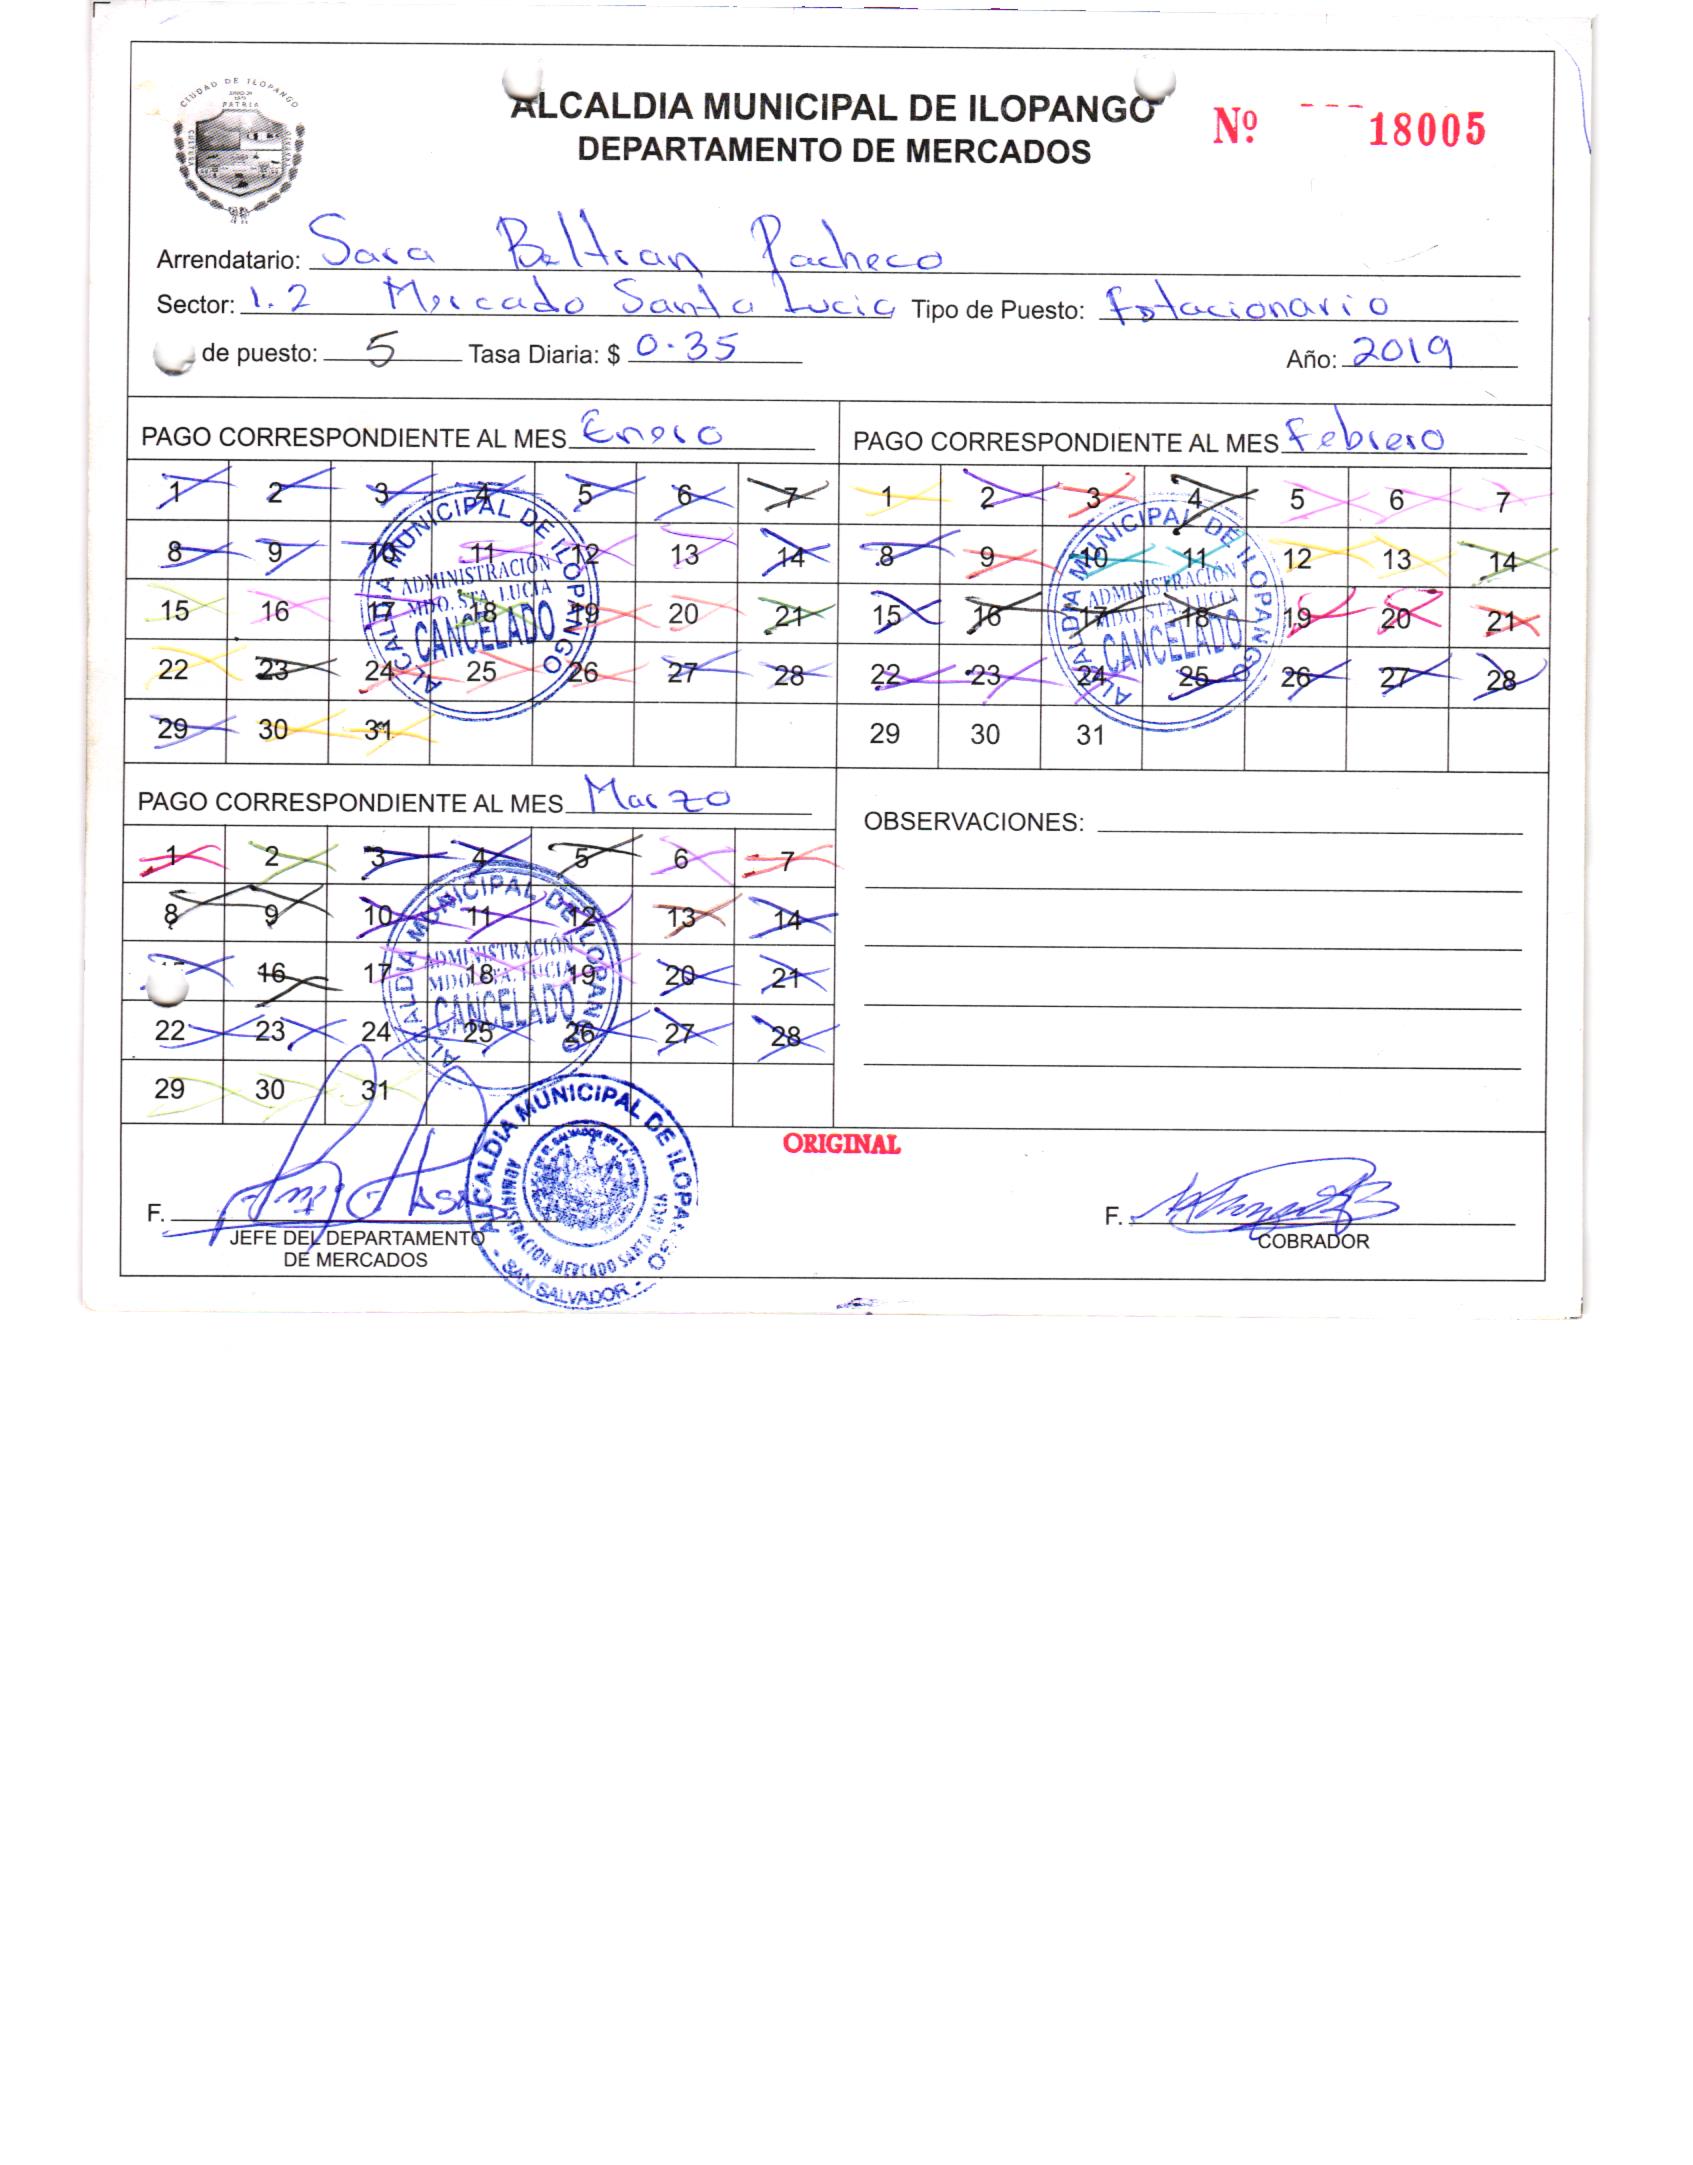 CIUDAD DE ILOPANGO
PATRIA
ALCALDIA MUNICIPAL DE ILOPANGO
DEPARTAMENTO DE MERCADOS
Nº 18005
Arrendatario: Sara Beltran Pacheco
Sector: 1.2 Mercado Santa Lucia Tipo de Puesto: Estacionario
de puesto: 5 Tasa Diaria: $ 0.35 Año: 2019
PAGO CORRESPONDIENTE AL MES Enero
1 2 3 4 5 6 7
8 9 10 11 12 13 14
15 16 17 18 19 20 21
22 23 24 25 26 27 28
29 30 31
ALCALDIA MUNICIPAL DE ILOPANGO
ADMINISTRACIÓN
MDO. STA. LUCIA
CANCELADO
PAGO CORRESPONDIENTE AL MES Febrero
1 2 3 4 5 6 7
8 9 10 11 12 13 14
15 16 17 18 19 20 21
22 23 24 25 26 27 28
29 30 31
ALCALDIA MUNICIPAL DE ILOPANGO
ADMINISTRACIÓN
MDO. STA. LUCIA
CANCELADO
PAGO CORRESPONDIENTE AL MES Marzo
1 2 3 4 5 6 7
8 9 10 11 12 13 14
16 17 18 19 20 21
22 23 24 25 26 27 28
29 30 31
ALCALDIA MUNICIPAL DE ILOPANGO
ADMINISTRACIÓN
MDO. STA. LUCIA
CANCELADO
OBSERVACIONES:
ORIGINAL
F.
JEFE DEL DEPARTAMENTO
DE MERCADOS
ALCALDIA MUNICIPAL DE ILOPANGO
ADMINISTRACION MERCADO SANTA LUCIA
- SAN SALVADOR -
F.
COBRADOR